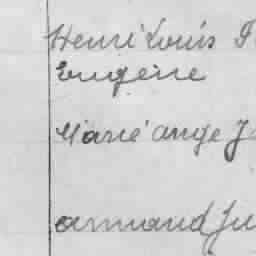 Henri Louis F
Eugène
Marie ange J
armand Ju